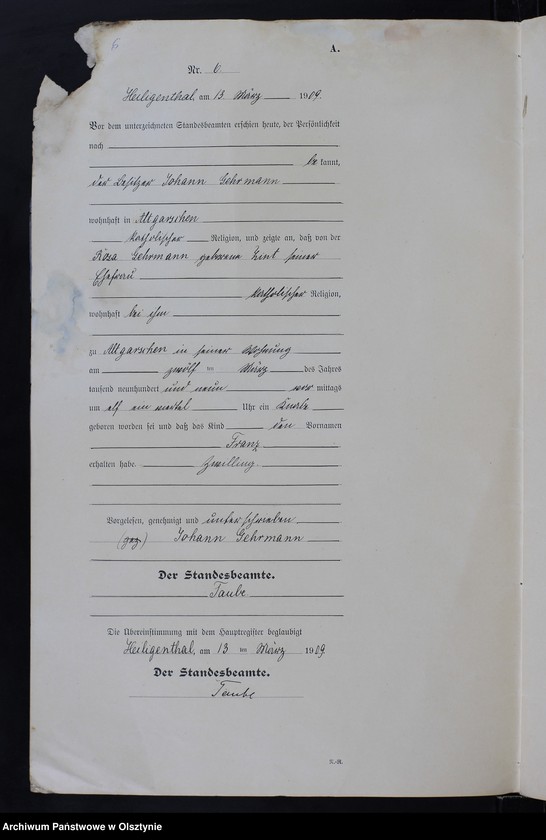 A.
Nr. 6
Heiligenthal, am 13. März 1909.
Vor dem unterzeichneten Standesbeamten erschien heute, der Persönlichkeit
nach
be kannt,
der Besitzer Johann Gehrmann
wohnhaft in Altgarschen
katholischer Religion, und zeigte an, daß von der
Rosa Gehrmann geborene Zint seiner
Ehefrau
katholischer Religion,
wohnhaft bei ihm
zu Altgarschen in seiner Wohnung
am zwölf ten März des Jahres
tausend neunhundert und neun vor mittags
um elf ein viertel Uhr ein Knabe
geboren worden sei und daß das Kind den Vornamen
Franz
erhalten habe. Zwilling.
Vorgelesen, genehmigt und unterschrieben
(gez) Johann Gehrmann
Der Standesbeamte.
Taube
Die Übereinstimmung mit dem Hauptregister beglaubigt
Heiligenthal, am 13 ten März 1909
Der Standesbeamte.
Taube
Archiwum Państwowe w Olsztynie